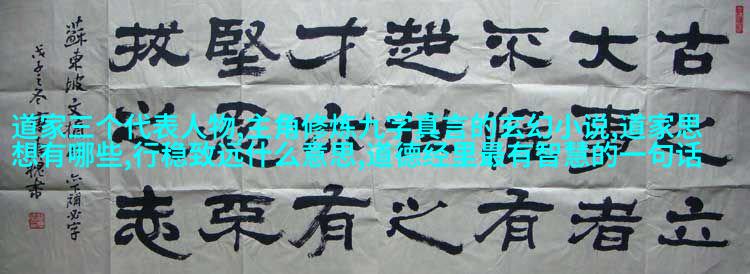 古之立
大事者
不惟有
超世之
才亦有
堅忍不
拔之志
蘇東坡文摘 亦下補必字
戊子之冬
道家三个代表人物,主角修性九字真言的玄幻小说,道家思
想有哪些,行稳致远什么意思,道德经里最有智慧的一句话